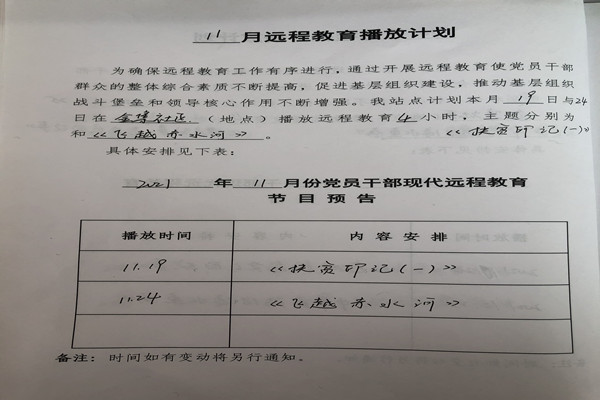 11月远程教育播放计划
为确保远程教育工作有序进行，通过开展远程教育使党员干部
群众的整体综合素质不断提高，促进基层组织建设，推动基层组织
战斗堡垒和领导核心作用不断增强。我站点计划本月19日与24
日在社区（地点）播放远程教育4小时，主题分别为
和《飞越赤水河》。《扶贫印记(一)》
具体安排见下表：
2021年11月份党员干部现代远程教育
节目预告
播放时间 内容安排
11.19 《扶贫印记(一)》
11.24 《飞越赤水河》
备注：时间如有变动将另行通知。